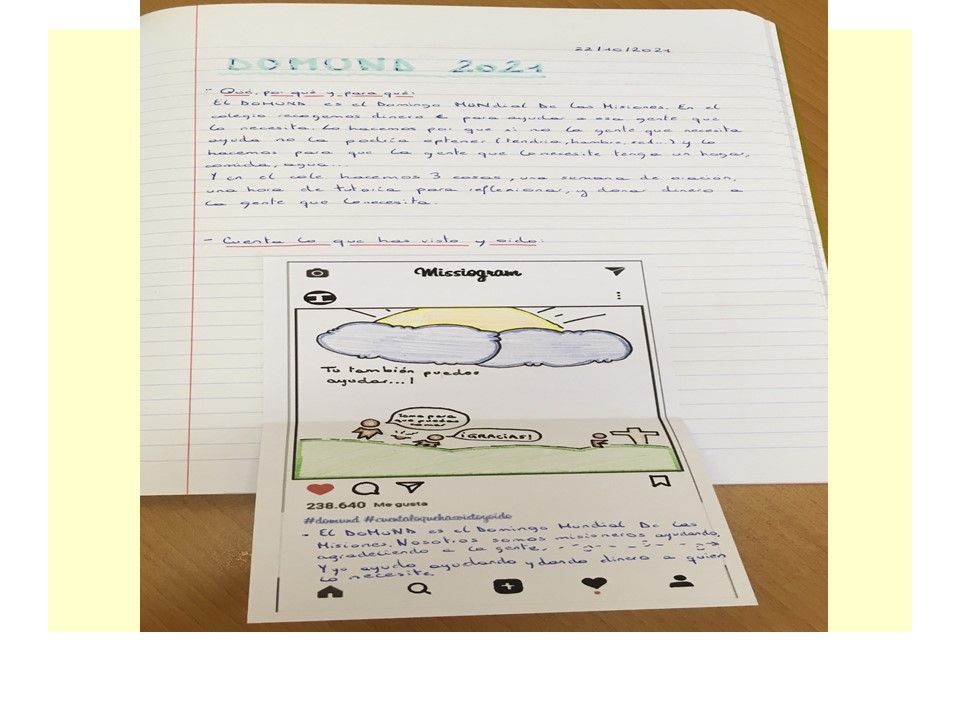 22/10/2021
DOMUND 2021
- Qué, por qué y para qué:
EL DOMUND es el Domingo MUNdial De las Misiones. En el
colegio recogemos dinero para ayudar a esa gente que
lo necesita. Lo hacemos por que si no la gente que necesita
ayuda no la podría optener (tendría, hambre, sed...) y lo
hacemos para que la gente que lo necesite tenga un hogar,
comida, agua...
Y en el cole hacemos 3 cosas, una semana de oración,
una hora de tutoría para reflexionar, y donar dinero a
la gente que lo necesita.
- Cuenta lo que has visto y oído:
Missiogram
Tú también puedes
ayudar...!
Toma para
que puedas
comer
¡GRACIAS!
238.640 Me gusta
#domund #cuentaloquehasvistoyoido
- EL DOMUND es el Domingo Mundial De las
Misiones. Nosotros somos misioneros ayudando,
agradeciendo a la gente.
Y yo ayudo ayudando y dando dinero a quien
lo necesite.